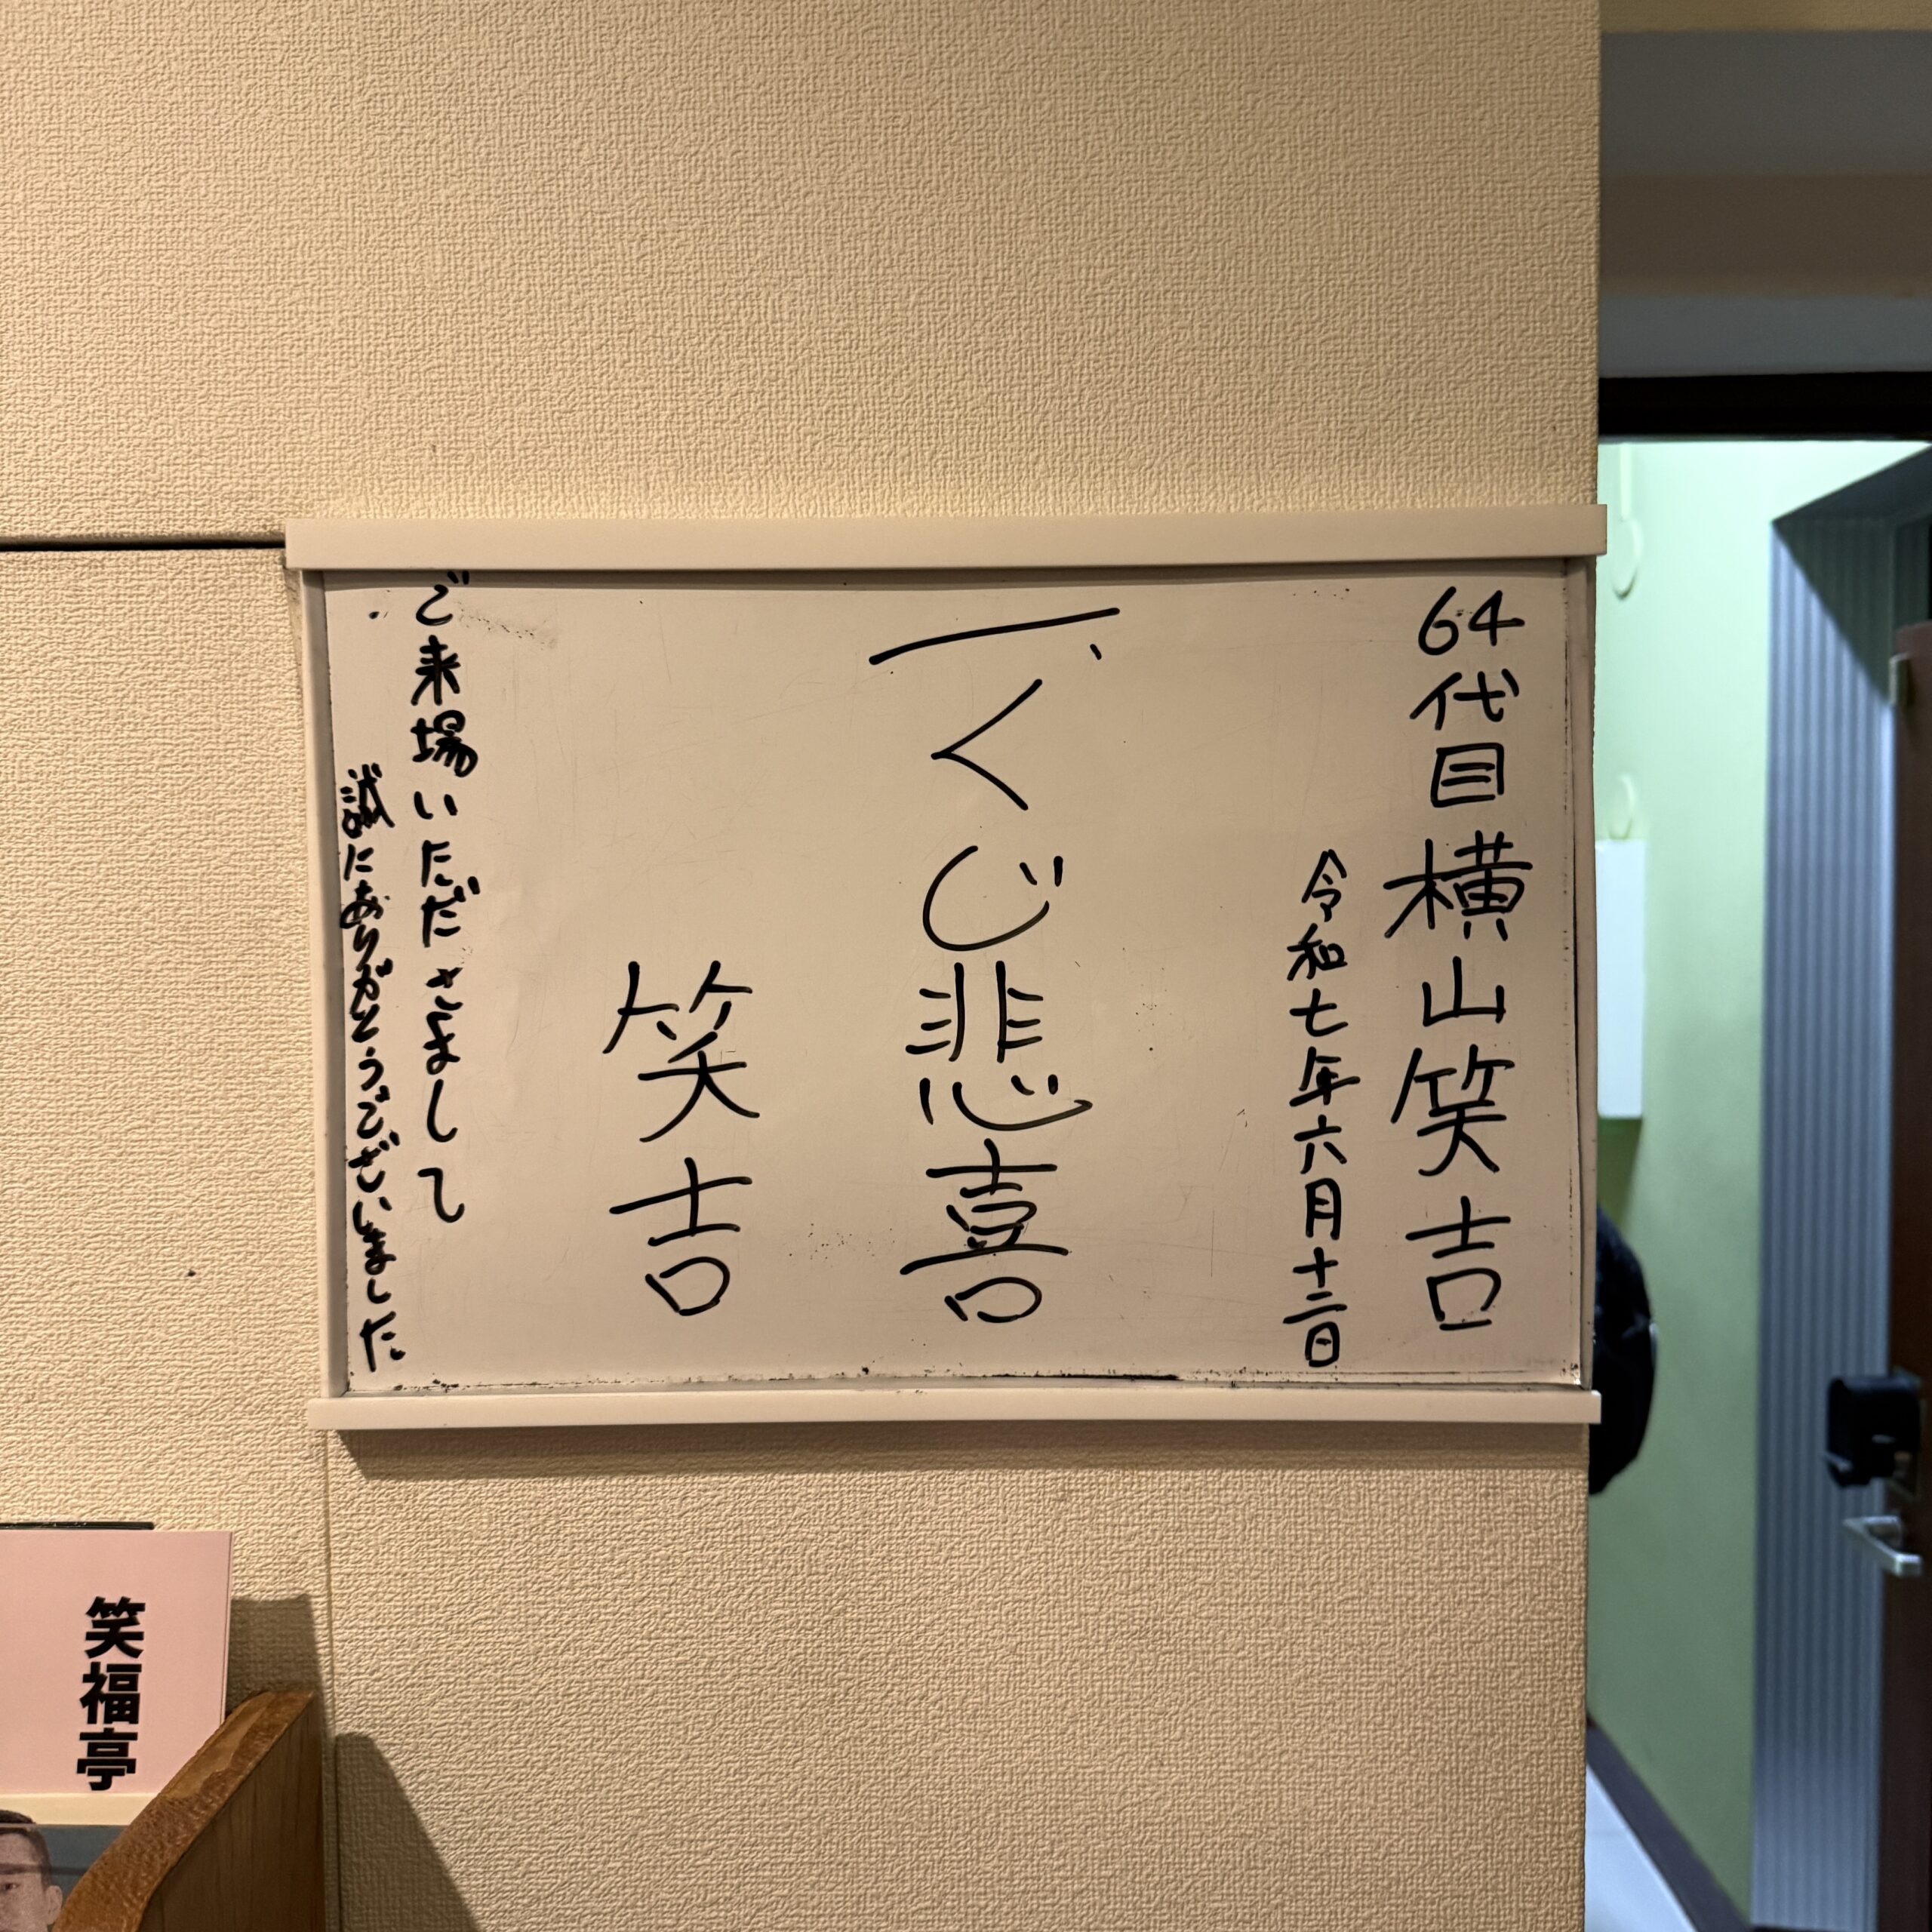 64代目横山笑吉
令和七年六月十二日
一、くじ悲喜
笑吉
ご来場いただきまして
誠にありがとうございました
笑福亭